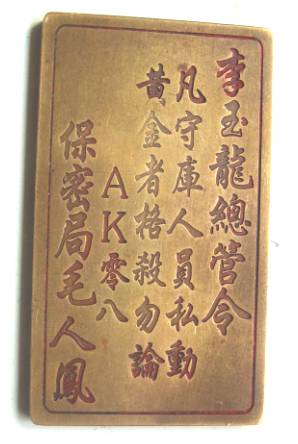 李玉龍總管令
凡守庫人員私動
黃金者格殺勿論
AK零八
保密局毛人鳳